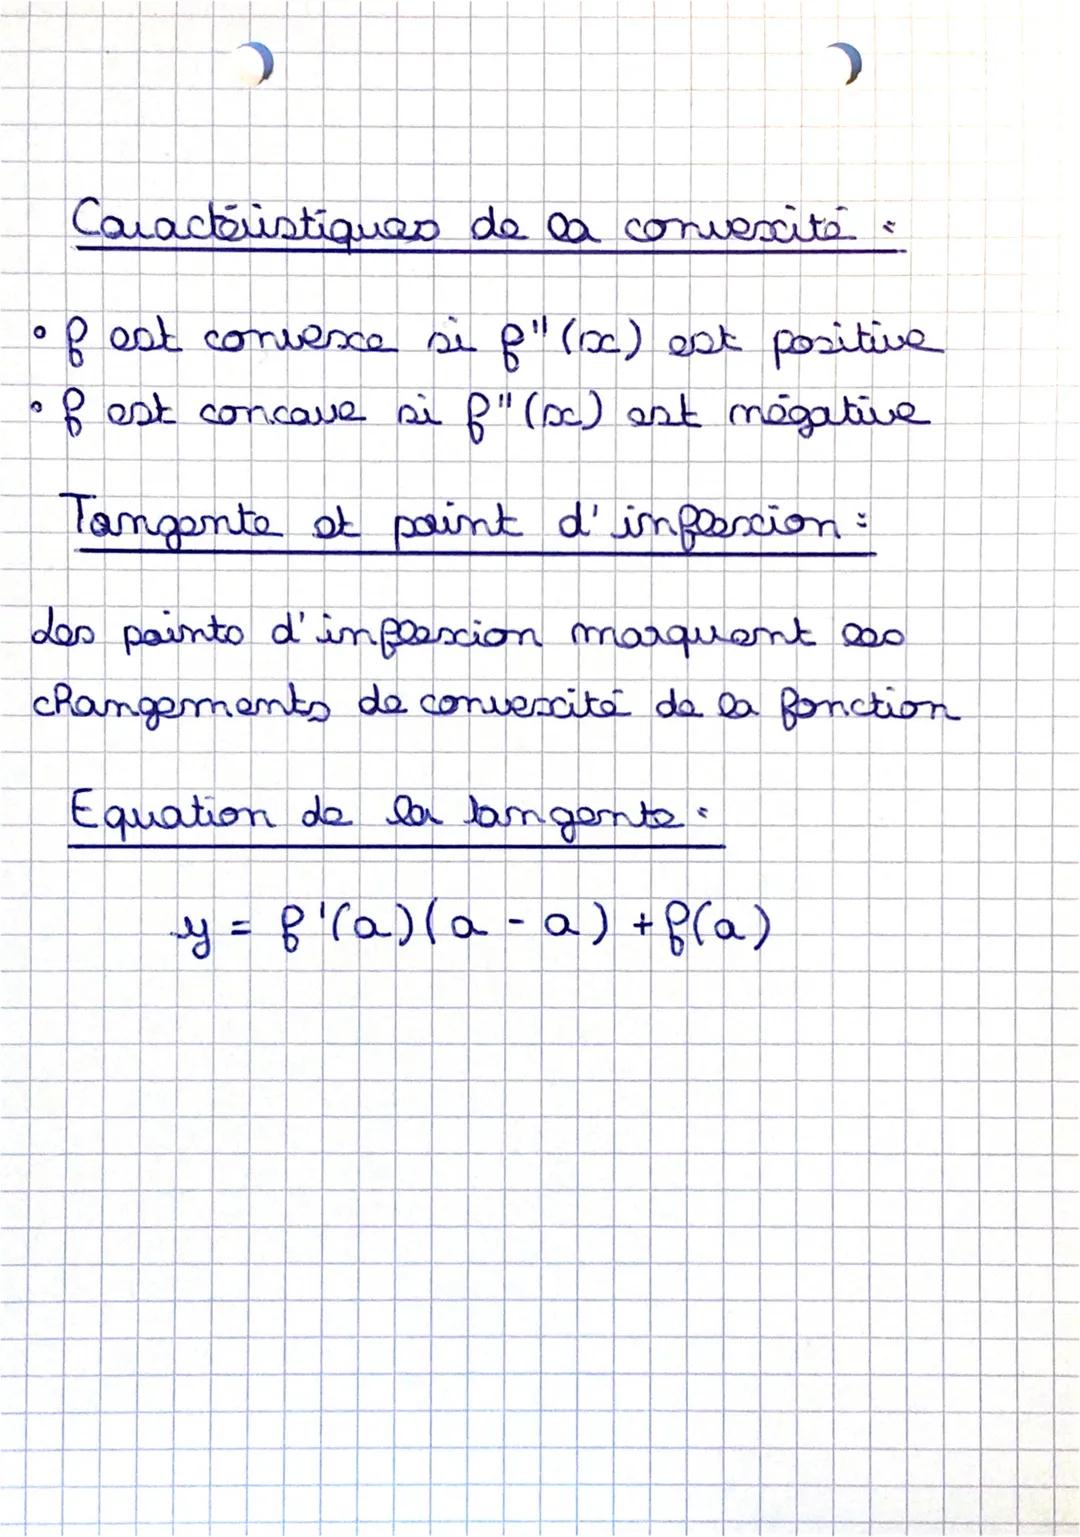 Caractéristiques de la convexité :
• f est convexe si f''(x) est positive
• f est concave si f''(x) est négative
Tangente et point d'inflexion :
des points d'inflexion marquent les
changements de convexité de la fonction
Equation de la tangente :
y = f'(a)(a - a) + f(a)